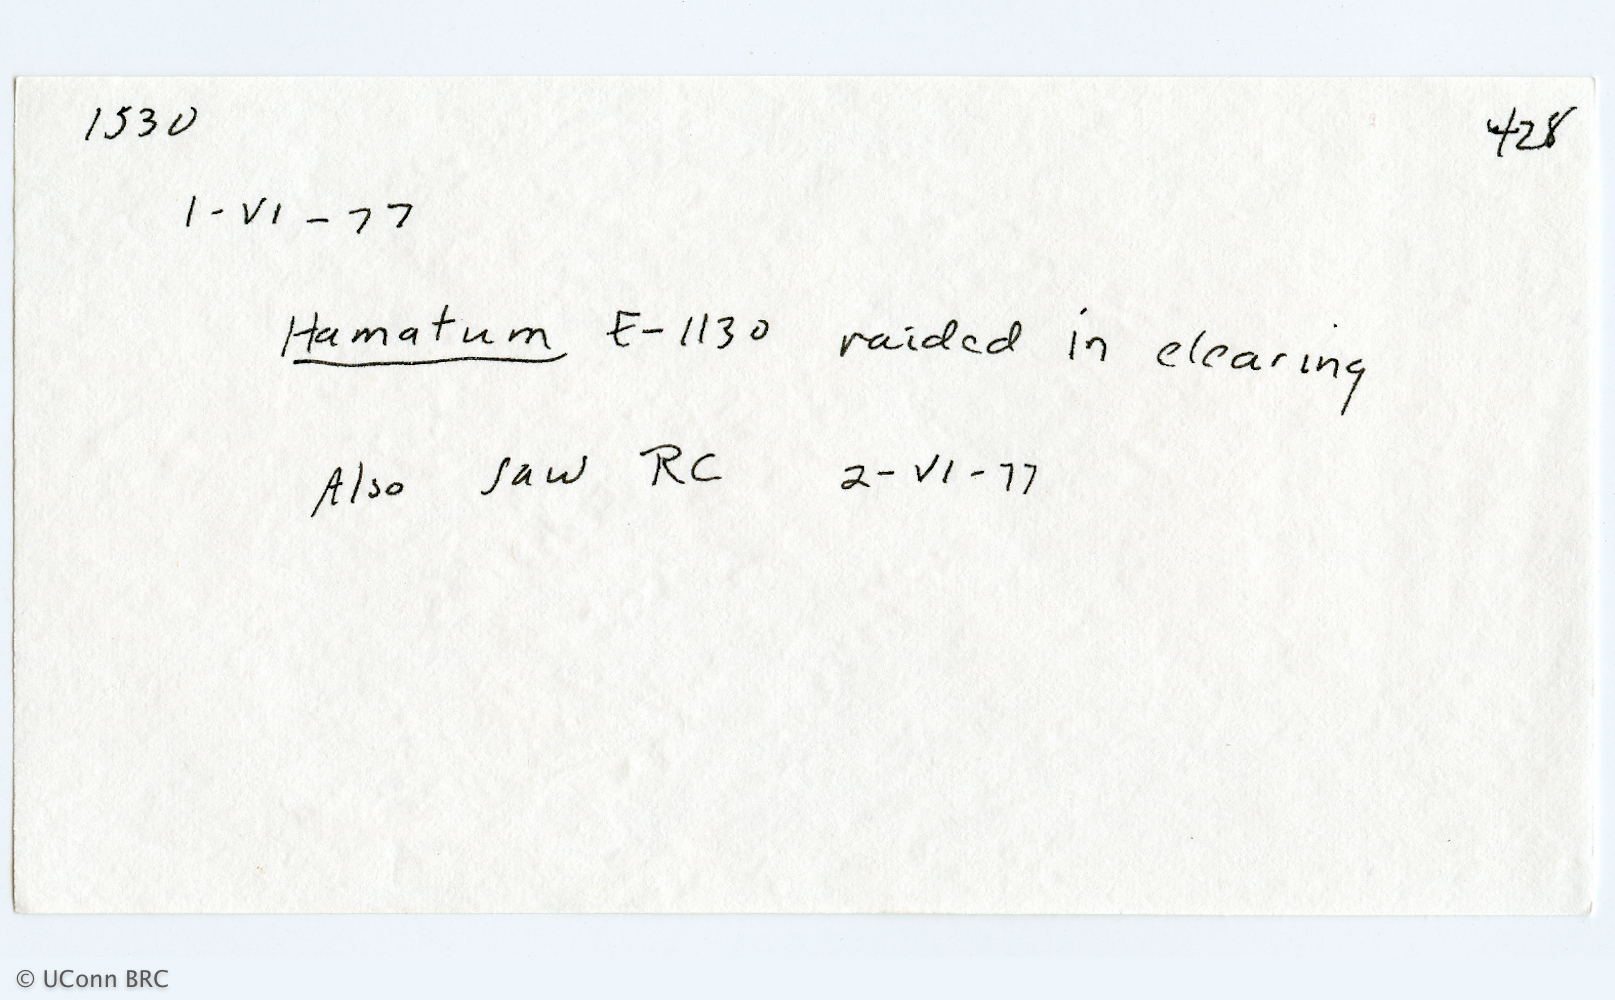 1530 428
1-VI-77
Hamatum E-1130 raided in clearing
Also saw RC 2-VI-77
© UConn BRC